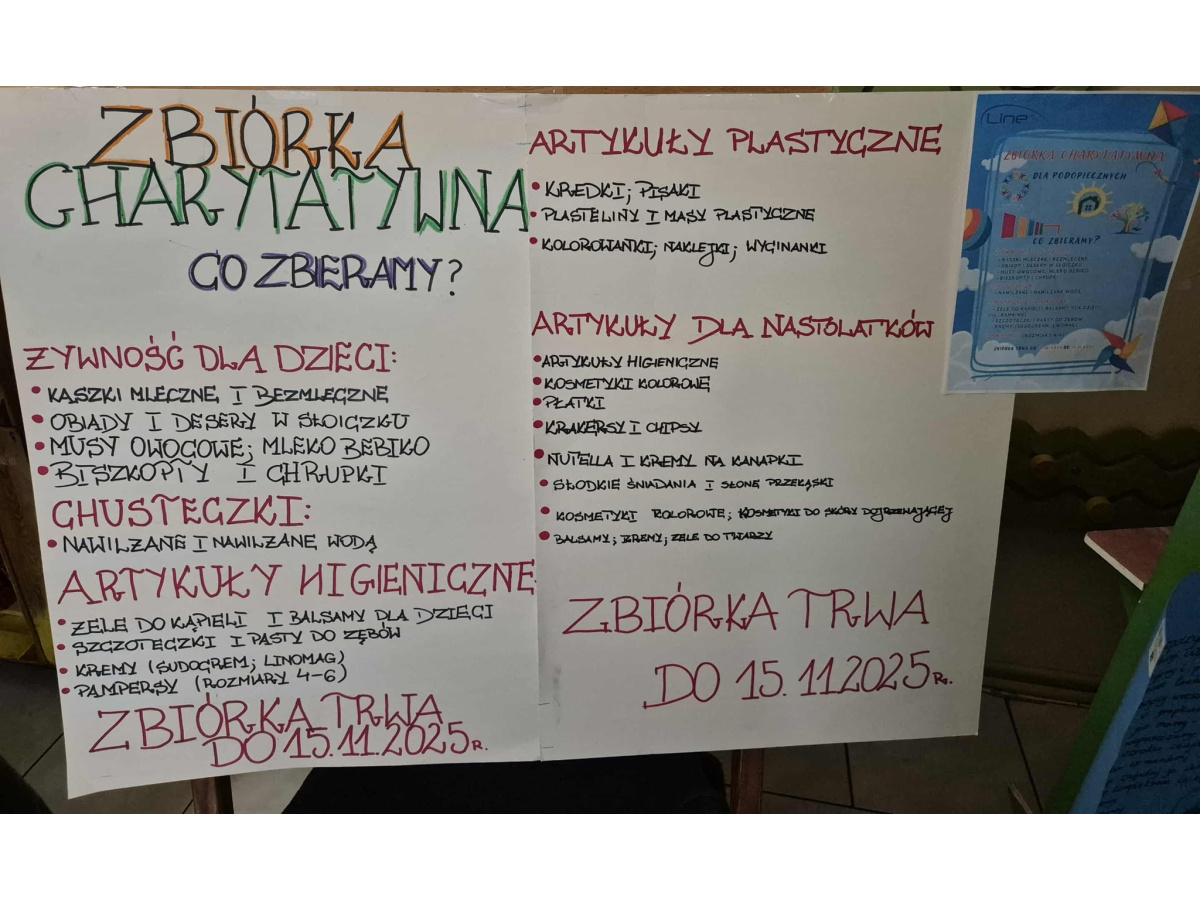 ZBIÓRKA
CHARYTATYWNA
CO ZBIERAMY?
ŻYWNOŚĆ DLA DZIECI:
• KASZKI MLECZNE I BEZMLECZNE
• OBIADY I DESERY W SŁOICZKU
• MUSY OWOCOWE; MLEKO BEBIKO
• BISZKOPTY I CHRUPKI
CHUSTECZKI:
• NAWILŻANE I NAWILŻANE WODĄ
ARTYKUŁY HIGIENICZNE
• ŻELE DO KĄPIELI I BALSAMY DLA DZIECI
• SZCZOTECZKI I PASTY DO ZĘBÓW
• KREMY (SUDOCREM; LINOMAG)
• PAMPERSY (ROZMIARY 4-6)
ZBIÓRKA TRWA
DO 15.11.2025R.
ARTYKUŁY PLASTYCZNE
• KREDKI; PISAKI
• PLASTELINY I MASY PLASTYCZNE
• KOLOROWANKI; NAKLEJKI; WYCINANKI
ARTYKUŁY DLA NASTOLATKÓW
• ARTYKUŁY HIGIENICZNE
• KOSMETYKI KOLOROWE
• PŁATKI
• KRAKERSY I CHIPSY
• NUTELLA I KREMY NA KANAPKI
• SŁODKIE ŚNIADANIA I SŁONE PRZEKĄSKI
• KOSMETYKI KOLOROWE; KOSMETYKI DO SKÓRY DOJRZEWAJĄCEJ
• BALSAMY; KREMY; ŻELE DO TWARZY
ZBIÓRKA TRWA
DO 15.11.2025R.
Line
ZBIÓRKA CHARYTATYWNA
DLA PODOPIECZNYCH
CO ZBIERAMY?
- KASZKI MLECZNE I BEZMLECZNE
- OBIADY I DESERY W SŁOICZKU
- MUSY OWOCOWE, MLEKO BEBIKO
- BISZKOPTY I CHRUPKI
- NAWILŻANE I NAWILŻANE WODĄ